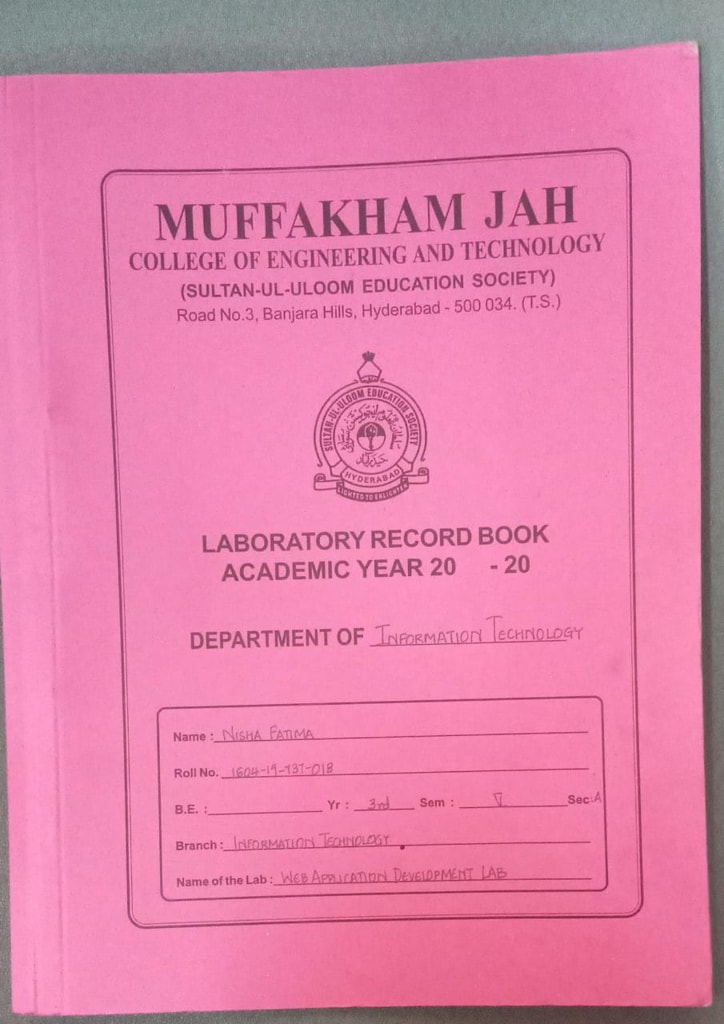 MUFFAKHAM JAH
COLLEGE OF ENGINEERING AND TECHNOLOGY
(SULTAN-UL-ULOOM EDUCATION SOCIETY)
Road No.3, Banjara Hills, Hyderabad - 500 034. (T.S.)
SULTAN-UL-ULOOM EDUCATION SOCIETY
HYDERABAD
LIGHTED TO ENLIGHTEN
LABORATORY RECORD BOOK
ACADEMIC YEAR 20 - 20
DEPARTMENT OF INFORMATION TECHNOLOGY
Name : NISHA FATIMA
Roll No. 1604-19-737-018
B.E. : Yr : 3rd Sem : V Sec: A
Branch : INFORMATION TECHNOLOGY
Name of the Lab : WEB APPLICATION DEVELOPMENT LAB